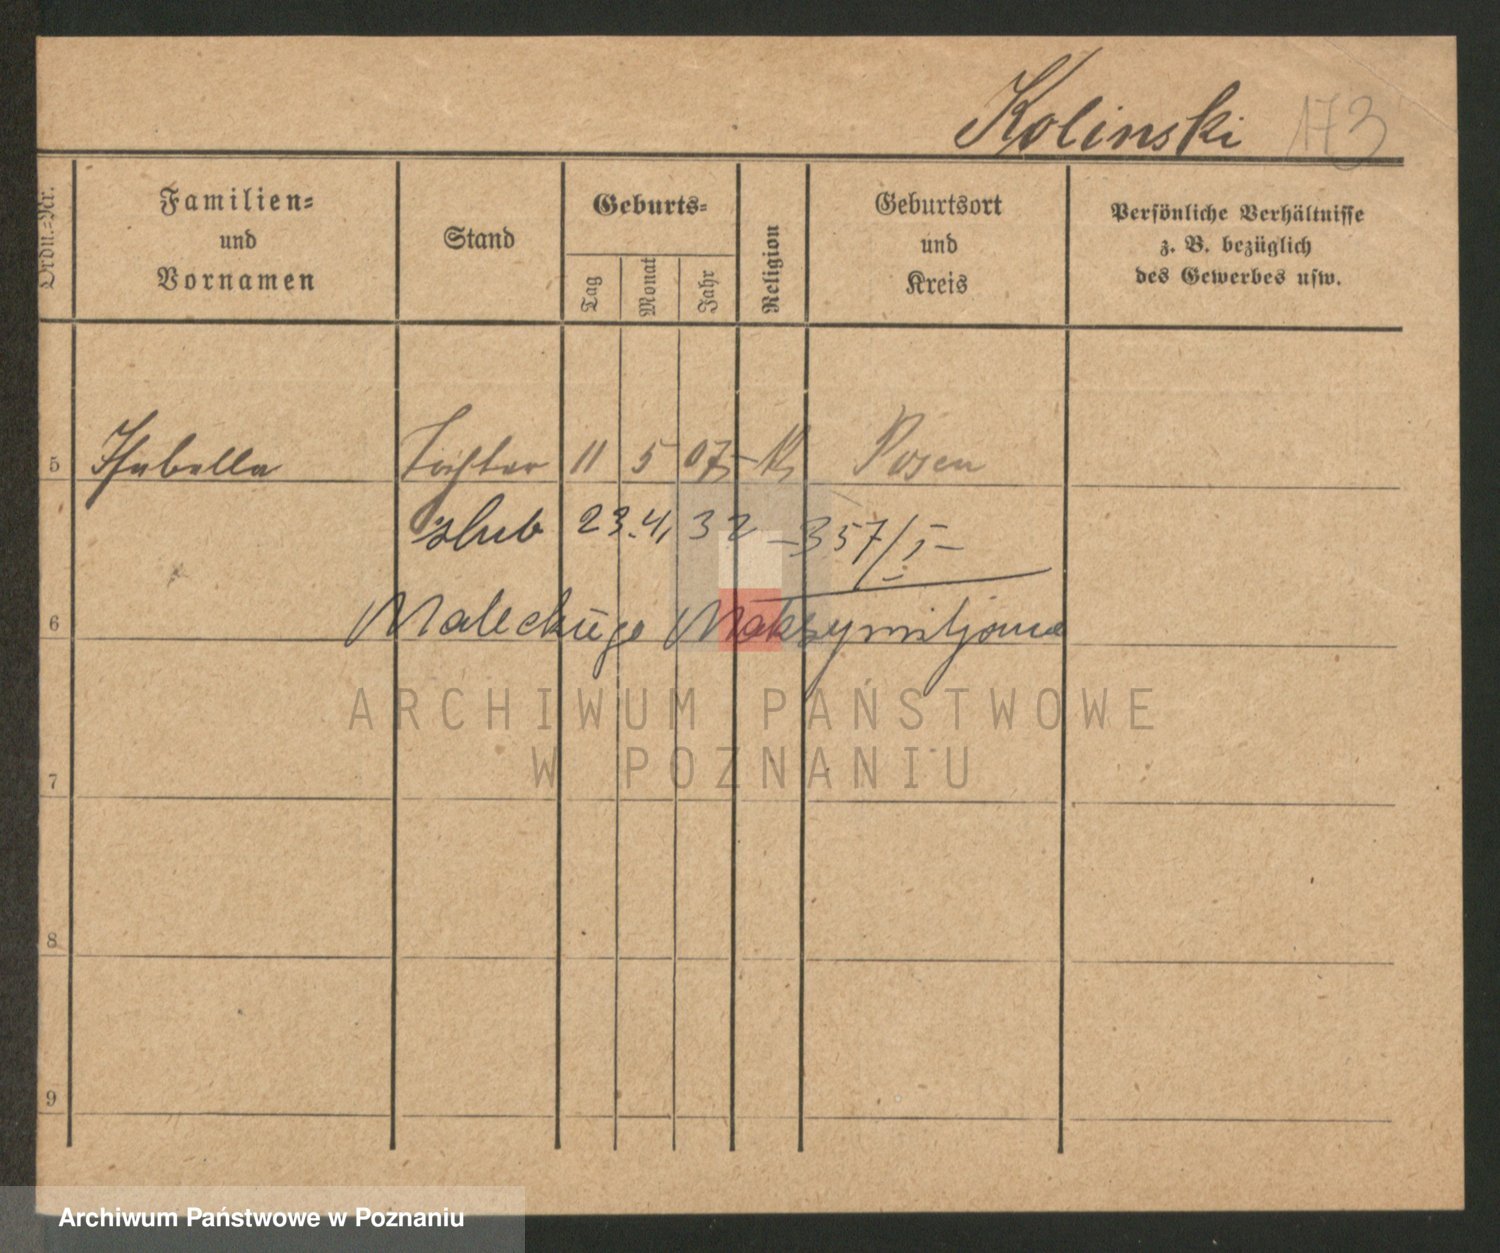 Kolinski 173
Ordn.-Nr.
Familien-
und
Vornamen
Stand
Geburts-
Tag
Monat
Jahr
Religion
Geburtsort
und
Kreis
Persönliche Verhältnisse
z. B. bezüglich
des Gewerbes usw.
5 Isabella Tochter 11 5 07 K Posen
ślub 23.4. 32 – 357/I –
6 Maleckiego Maksymiljana
ARCHIWUM PAŃSTWOWE
W POZNANIU
7
8
9
Archiwum Państwowe w Poznaniu